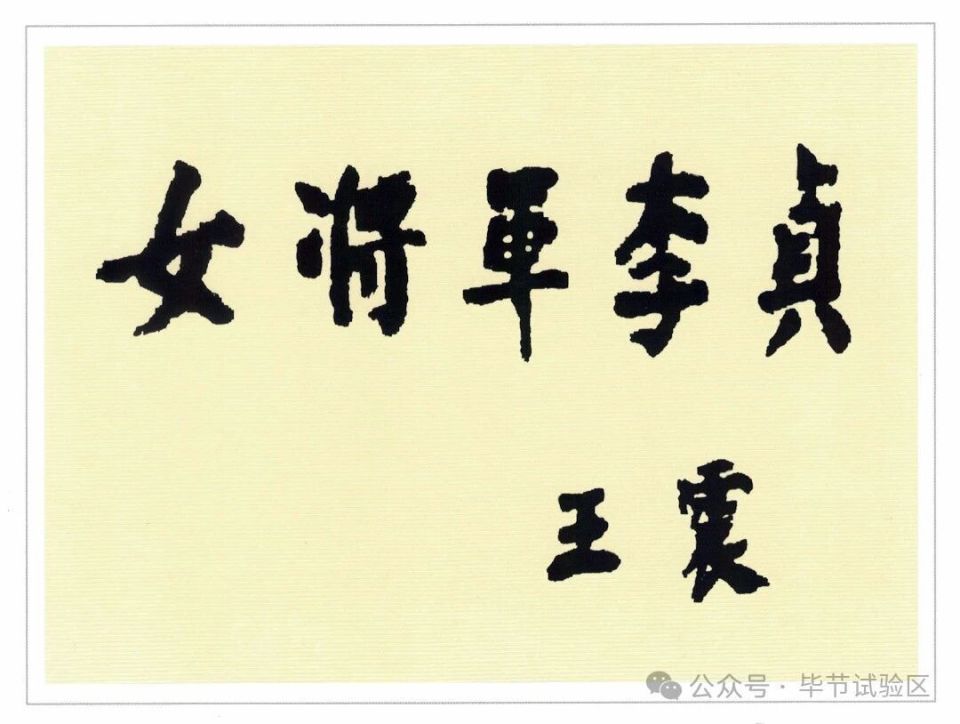 女将軍李貞
王震
公众号·毕节试验区